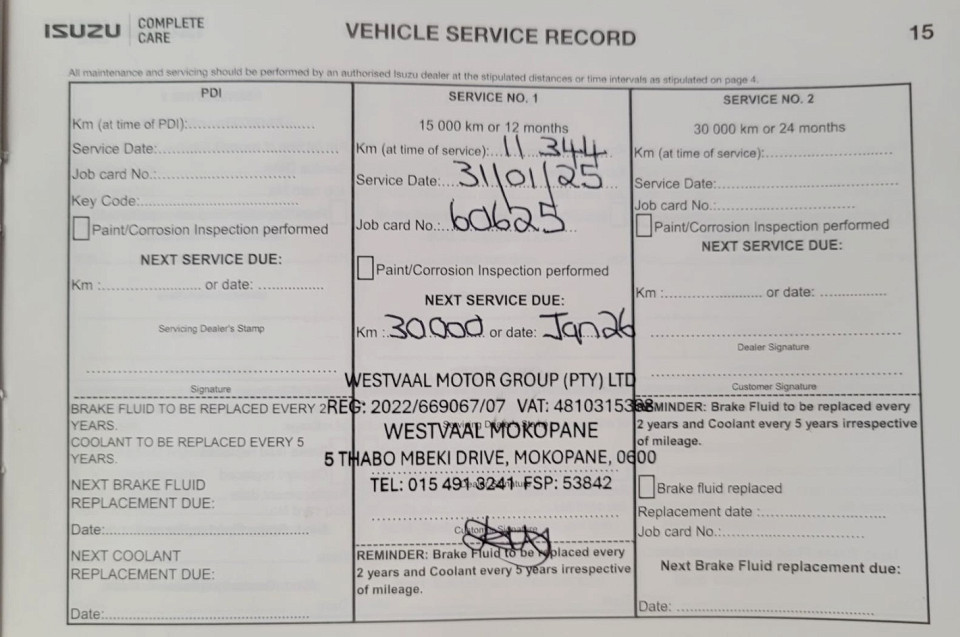 ISUZU COMPLETE CARE
VEHICLE SERVICE RECORD
15
All maintenance and servicing should be performed by an authorised Isuzu dealer at the stipulated distances or time intervals as stipulated on page 4.
PDI
Km (at time of PDI):
Service Date:
Job card No.:
Key Code:
Paint/Corrosion Inspection performed
NEXT SERVICE DUE:
Km : or date:
Servicing Dealer's Stamp
Signature
BRAKE FLUID TO BE REPLACED EVERY 2
YEARS.
COOLANT TO BE REPLACED EVERY 5
YEARS.
NEXT BRAKE FLUID
REPLACEMENT DUE:
Date:
NEXT COOLANT
REPLACEMENT DUE:
Date:
SERVICE NO. 1
15 000 km or 12 months
Km (at time of service): 11 344
Service Date: 31/01/25
Job card No.: 60625
Paint/Corrosion Inspection performed
NEXT SERVICE DUE:
Km : 30000 or date: Jan 26
WESTVAAL MOTOR GROUP (PTY) LTD
REG: 2022/669067/07 VAT: 4810315
WESTVAAL MOKOPANE
5 THABO MBEKI DRIVE, MOKOPANE, 0600
TEL: 015 491 3241 FSP: 53842
Customer Signature
REMINDER: Brake Fluid to be replaced every
2 years and Coolant every 5 years irrespective
of mileage.
SERVICE NO. 2
30 000 km or 24 months
Km (at time of service):
Service Date:
Job card No.:
Paint/Corrosion Inspection performed
NEXT SERVICE DUE:
Km : or date:
Dealer Signature
Customer Signature
REMINDER: Brake Fluid to be replaced every
2 years and Coolant every 5 years irrespective
of mileage.
Brake fluid replaced
Replacement date :
Job card No.:
Next Brake Fluid replacement due:
Date: